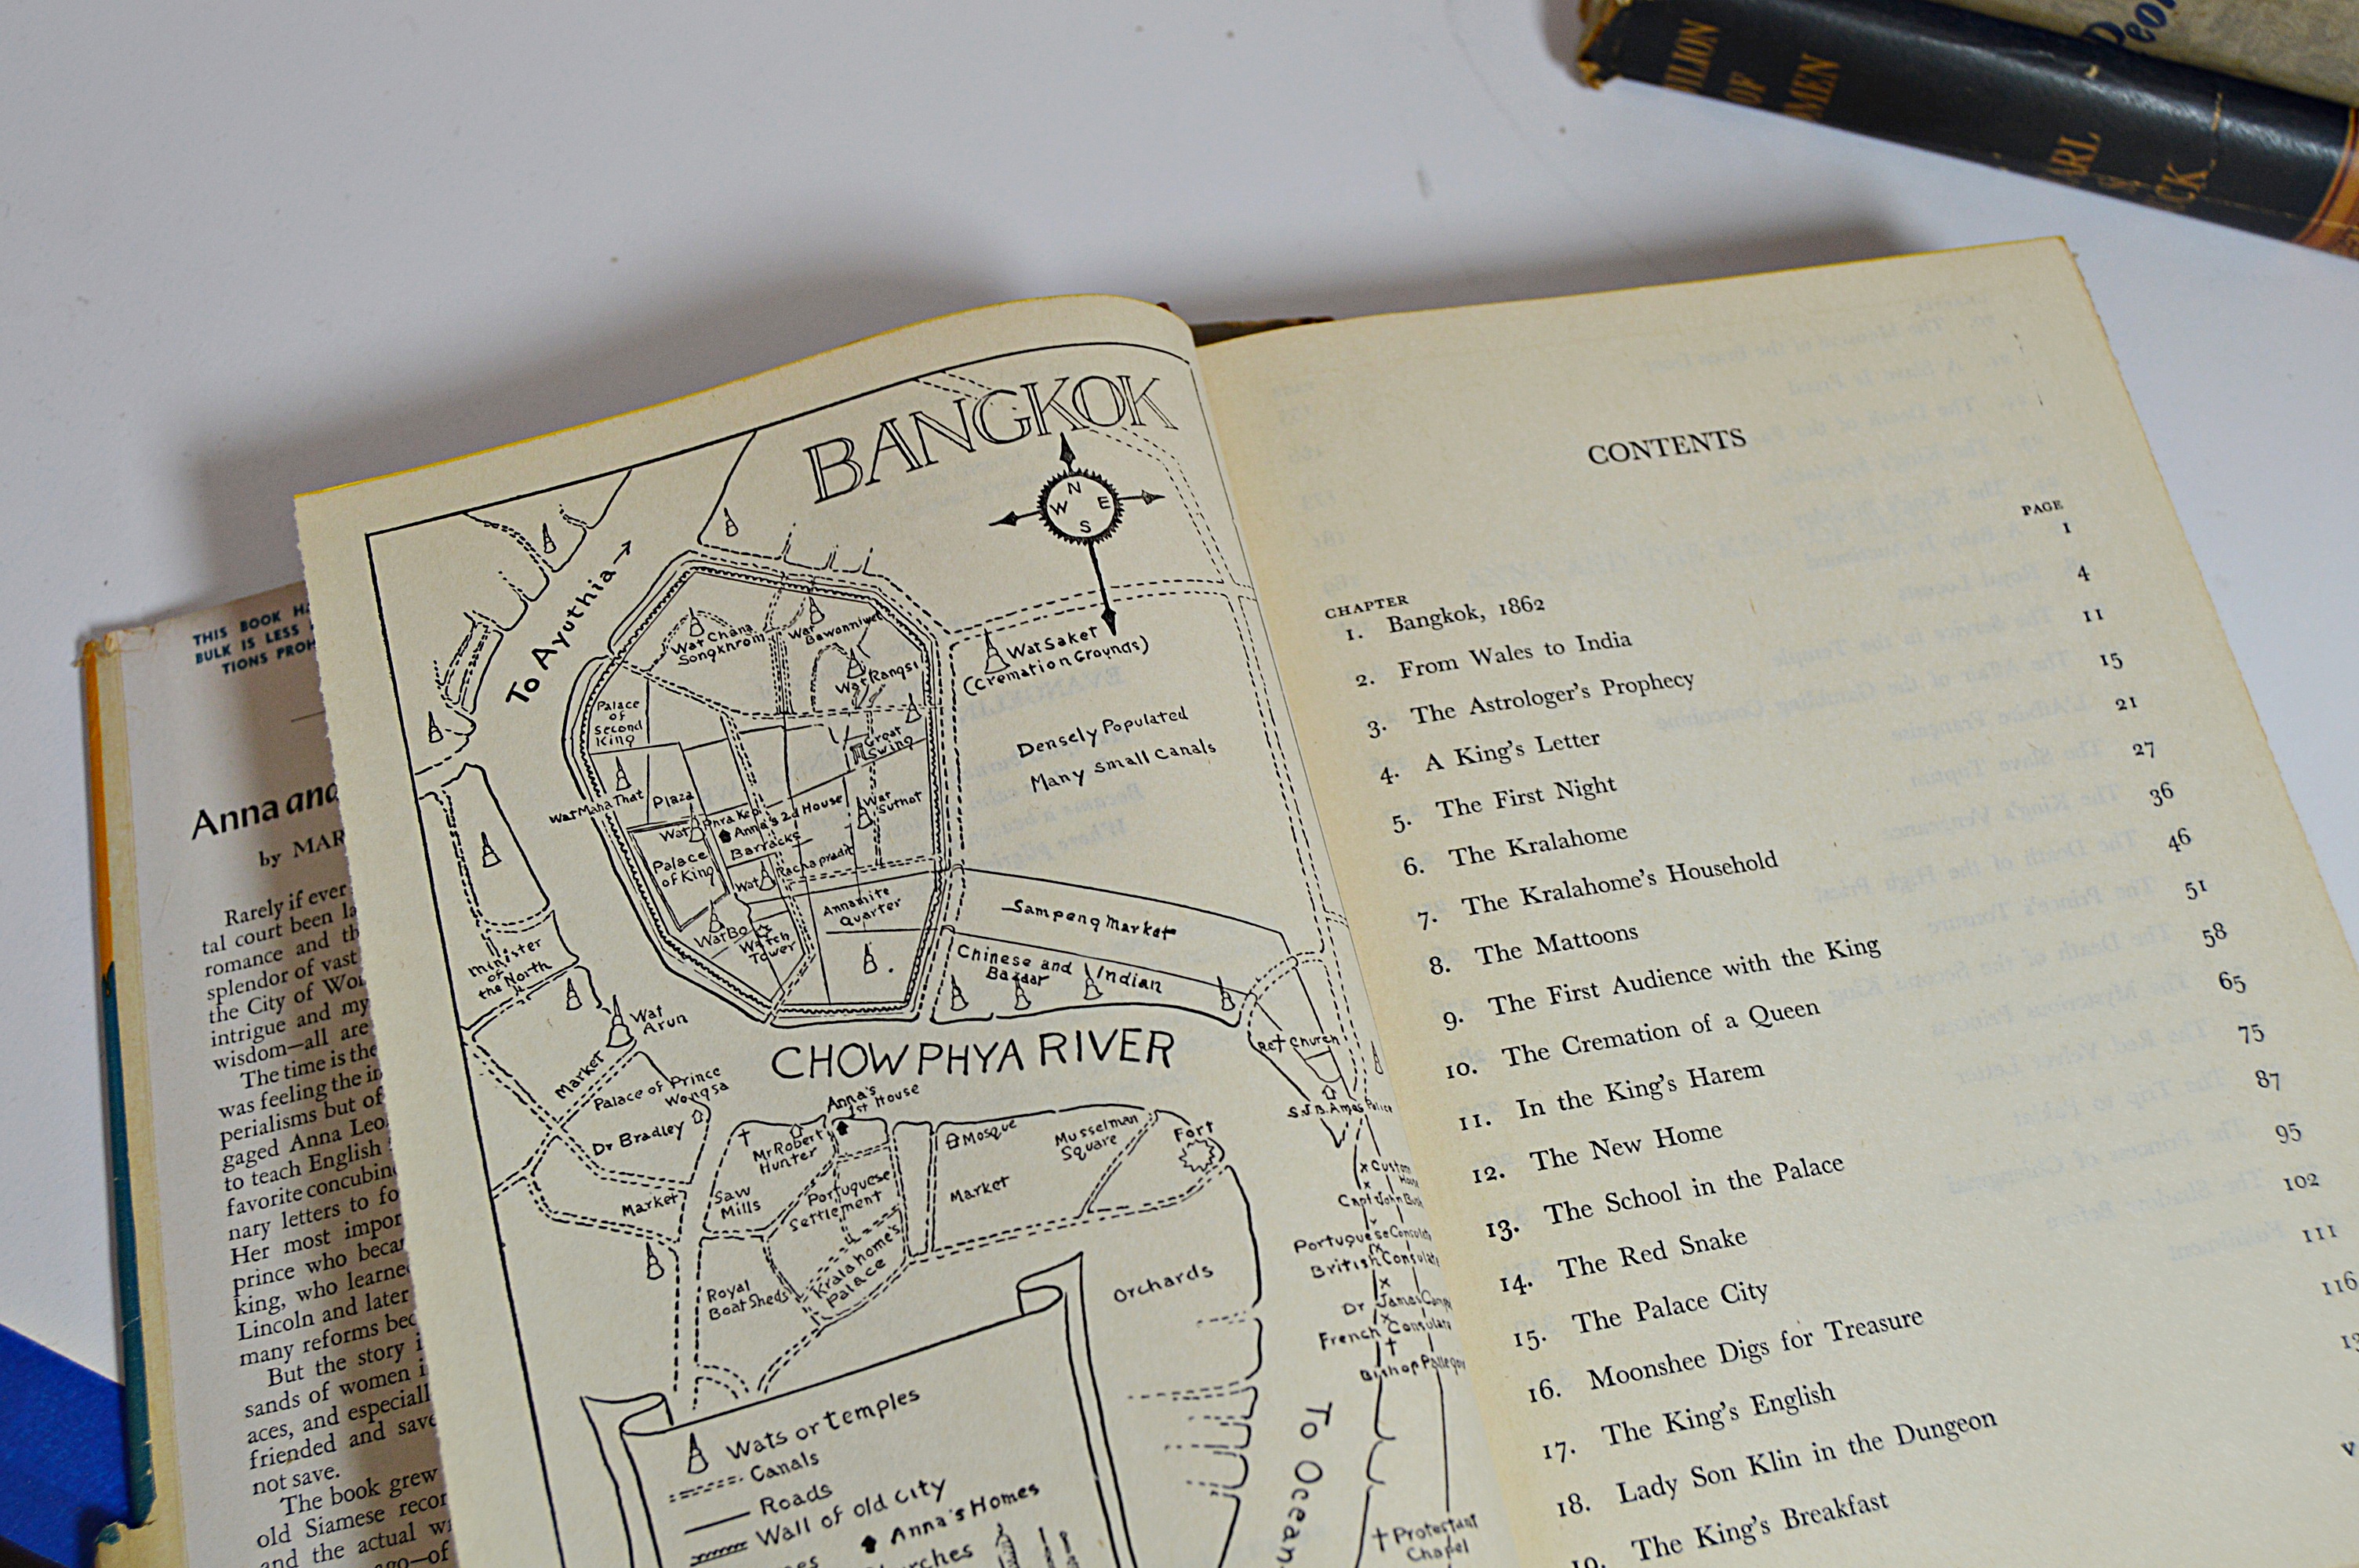 THIS BOOK HA
BULK IS LESS
TIONS PROH
Anna and
by MAR
Rarely if ever
tal court been la
romance and th
splendor of vast
the City of Wo
intrigue and my
wisdom—all are
The time is the
was feeling the in
perialisms but of
gaged Anna Leo
to teach English
favorite concubin
nary letters to fo
Her most impor
prince who becam
king, who learned
Lincoln and later
many reforms bec
But the story i
sands of women i
aces, and especiall
friended and save
not save.
The book grew
old Siamese recor
and the actual w
ago—of
BANGKOK
N
W E
S
To Ayuthia
Wat Chana
Songkhrom
Wat
Bawonniwet
Wat Rangsi
Wat Saket
(Cremation Grounds)
Palace
of
Second
King
Great
Swing
Densely Populated
Many Small Canals
Wat Maha That
Plaza
Wat Phra Keo
Anna's 2d House
Wat
Suthat
Barracks
Palace
of King
Wat Rachapradit
Annamite
Quarter
Wat Bo
Watch
Tower
Sampeng Market
Chinese and Indian
Bazaar
Minister
of
the North
Wat
Arun
Market
CHOW PHYA RIVER
Palace of Prince
Wongsa
Dr Bradley
Anna's
1st House
Mr Robert
Hunter
Mosque
Musselman
Square
Fort
Market
Saw
Mills
Portuguese
Settlement
Market
Royal
Boat Sheds
Kralahome's
Palace
Orchards
Church
Custom
Portuguese
British Consulate
Dr James
French Consulate
Bishop
To Ocean
Protestant
Chapel
Wats or temples
Canals
Roads
Wall of old city
Anna's Homes
CONTENTS
CHAPTER PAGE
1. Bangkok, 1862 1
2. From Wales to India 4
3. The Astrologer's Prophecy 11
4. A King's Letter 15
5. The First Night 21
6. The Kralahome 27
7. The Kralahome's Household 36
8. The Mattoons 46
9. The First Audience with the King 51
10. The Cremation of a Queen 58
11. In the King's Harem 65
12. The New Home 75
13. The School in the Palace 87
14. The Red Snake 95
15. The Palace City 102
16. Moonshee Digs for Treasure 111
17. The King's English 116
18. Lady Son Klin in the Dungeon
19. The King's Breakfast
v
ILION
OF
OMEN
ARL
CK
Peo